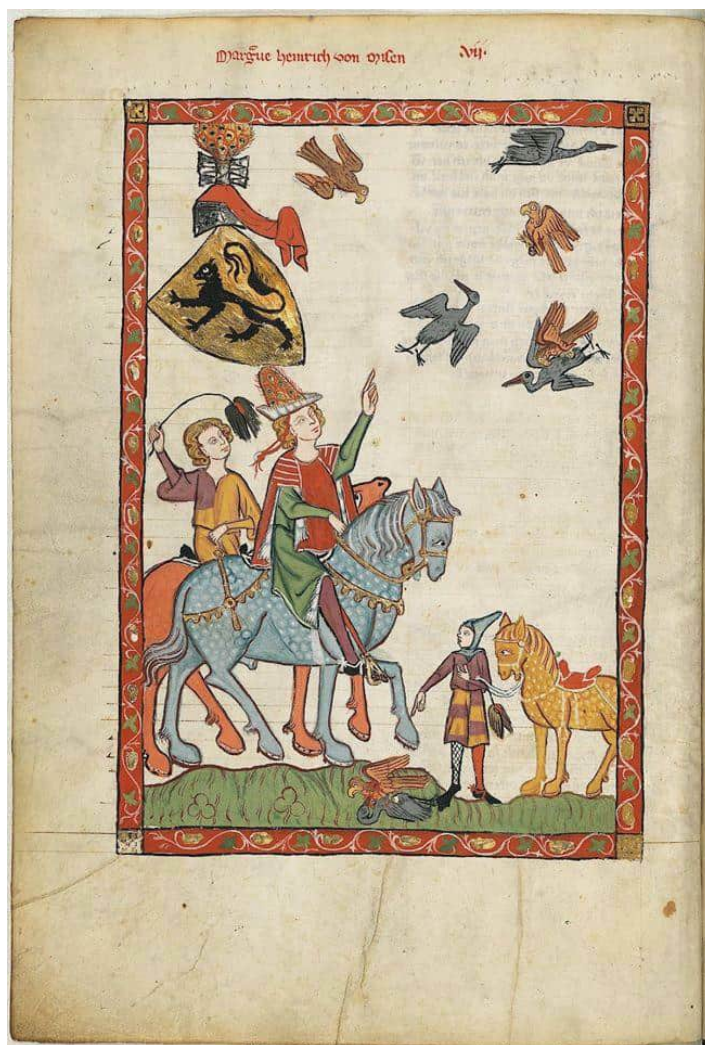 Margᵒue heinrich von misen vij·